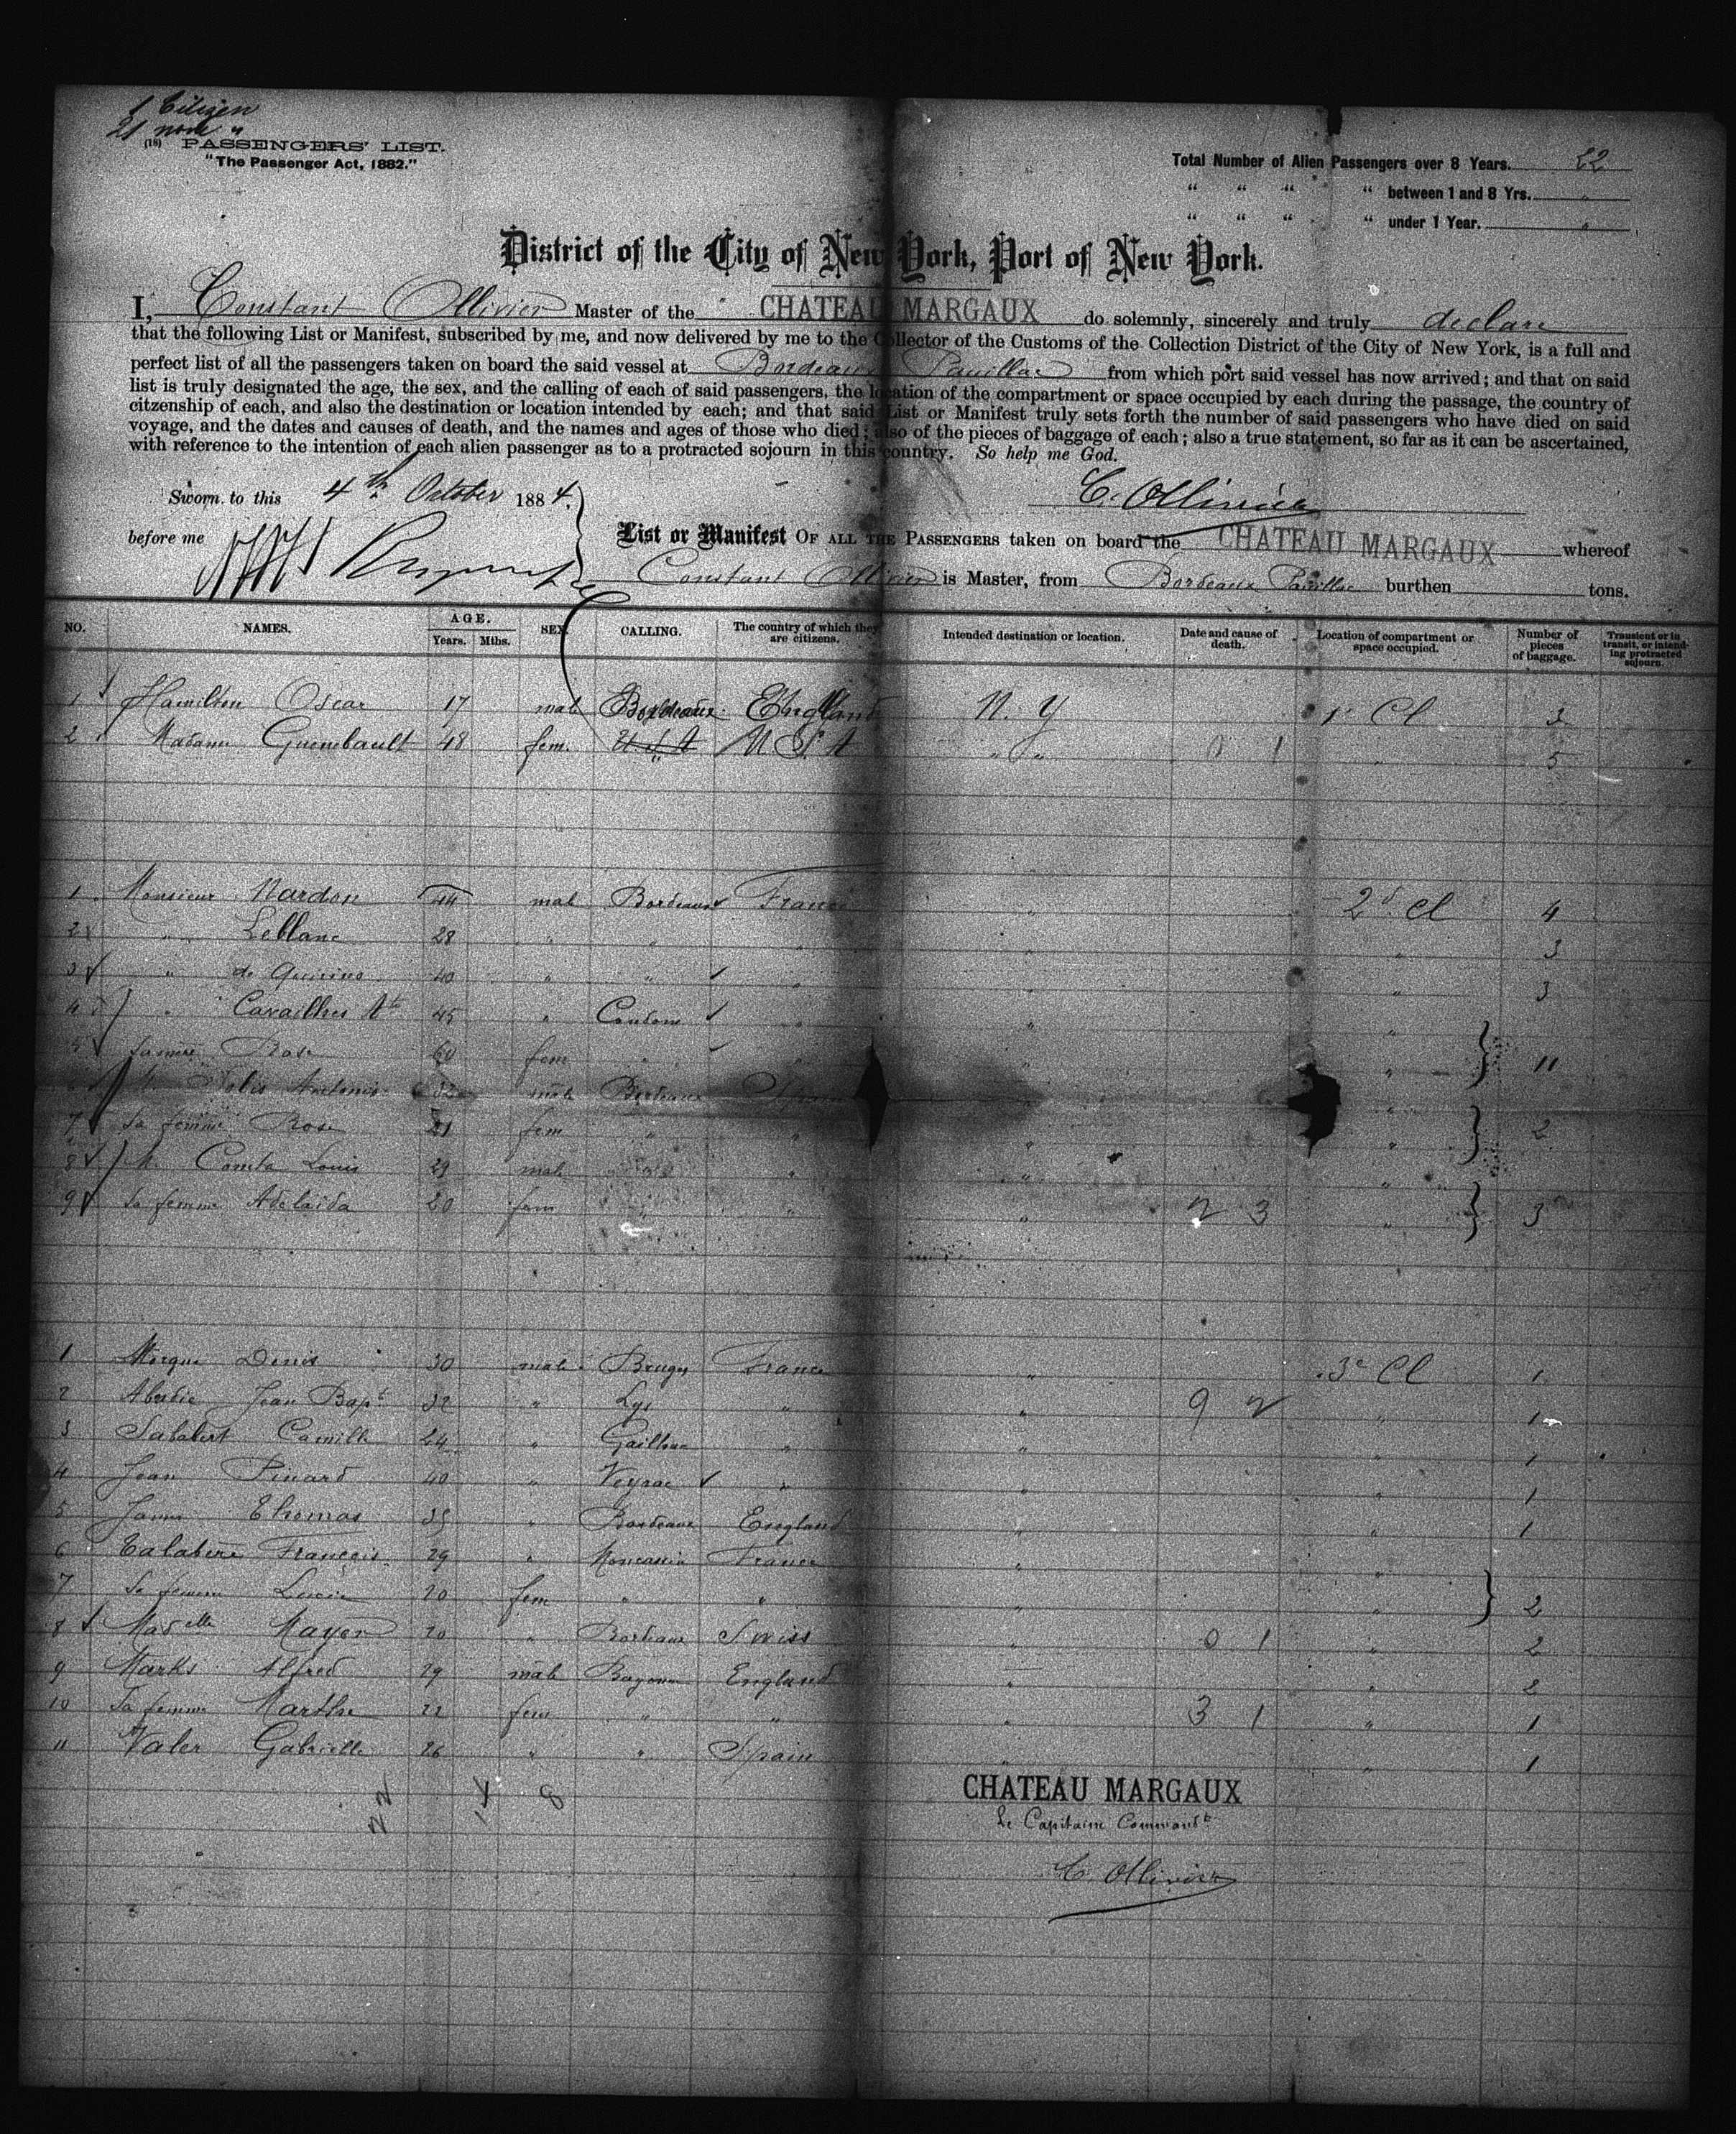 1 Citizen
21 non "
(18) PASSENGERS' LIST.
"The Passenger Act, 1882."
Total Number of Alien Passengers over 8 Years. 22
" " " " between 1 and 8 Yrs. "
" " " " under 1 Year. "
District of the City of New York, Port of New York.
I, Constant Ollivier Master of the CHATEAU MARGAUX do solemnly, sincerely and truly declare
that the following List or Manifest, subscribed by me, and now delivered by me to the Collector of the Customs of the Collection District of the City of New York, is a full and
perfect list of all the passengers taken on board the said vessel at Bordeaux Pauillac from which port said vessel has now arrived; and that on said
list is truly designated the age, the sex, and the calling of each of said passengers, the location of the compartment or space occupied by each during the passage, the country of
citzenship of each, and also the destination or location intended by each; and that said List or Manifest truly sets forth the number of said passengers who have died on said
voyage, and the dates and causes of death, and the names and ages of those who died; also of the pieces of baggage of each; also a true statement, so far as it can be ascertained,
with reference to the intention of each alien passenger as to a protracted sojourn in this country. So help me God.
Sworn to this 4th October 1884. C. Ollivier
before me
List or Manifest OF ALL THE PASSENGERS taken on board the CHATEAU MARGAUX whereof
Constant Ollivier is Master, from Bordeaux Pauillac burthen tons.
NO. NAMES. AGE. Years. Mths. SEX. CALLING. The country of which they are citizens. Intended destination or location. Date and cause of death. Location of compartment or space occupied. Number of pieces of baggage. Transient or in transit, or intending protracted sojourn.
1 Hamilton Oscar 17 male Bordeaux England N. Y 1e Cl 3
2 Madame Guembault 48 fem. U S A U S A " " 0 1 " 5
1 Monsieur Nardon 44 male Bordeaux France " 2d Cl 4
2 " Leblanc 28 " " " " " 3
3 " de Quirino 40 " " " " " 3
4 " Cavailhes 45 " Condom " " "
5 Sa mère Rose 60 fem " " " " 11
M. Solis Antonio 32 male Bordeaux Spain "
7 Sa femme Rose 21 fem " " " " 2
8 M. Comta Louis 29 male " " " "
9 Sa femme Adelaïda 20 fem " " " 2 3 " 3
1 Morque Denis 30 male Bruges France " 3e Cl 1
2 Abadie Jean Bapt 32 " Lys " " 9 2 " 1
3 Sabatert Camille 24 " Gaillac " " " 1
4 Jean Pinard 40 " Veyrac " " " 1
5 James Thomas 35 " Bordeaux England " " 1
6 Talabere François 29 " France " "
7 Sa femme Lucie 20 fem " " " " 2
8 Madelle Mayer 20 " Bordeaux Swiss " 0 1 " 2
9 Marks Alfred 29 male Bayonne England " " 2
10 Sa femme Marthe 22 fem " " " 3 1 " 1
11 Valer Gabrielle 26 " " Spain " " 1
22 14 8
CHATEAU MARGAUX
Le Capitaine Commandt
C. Ollivier